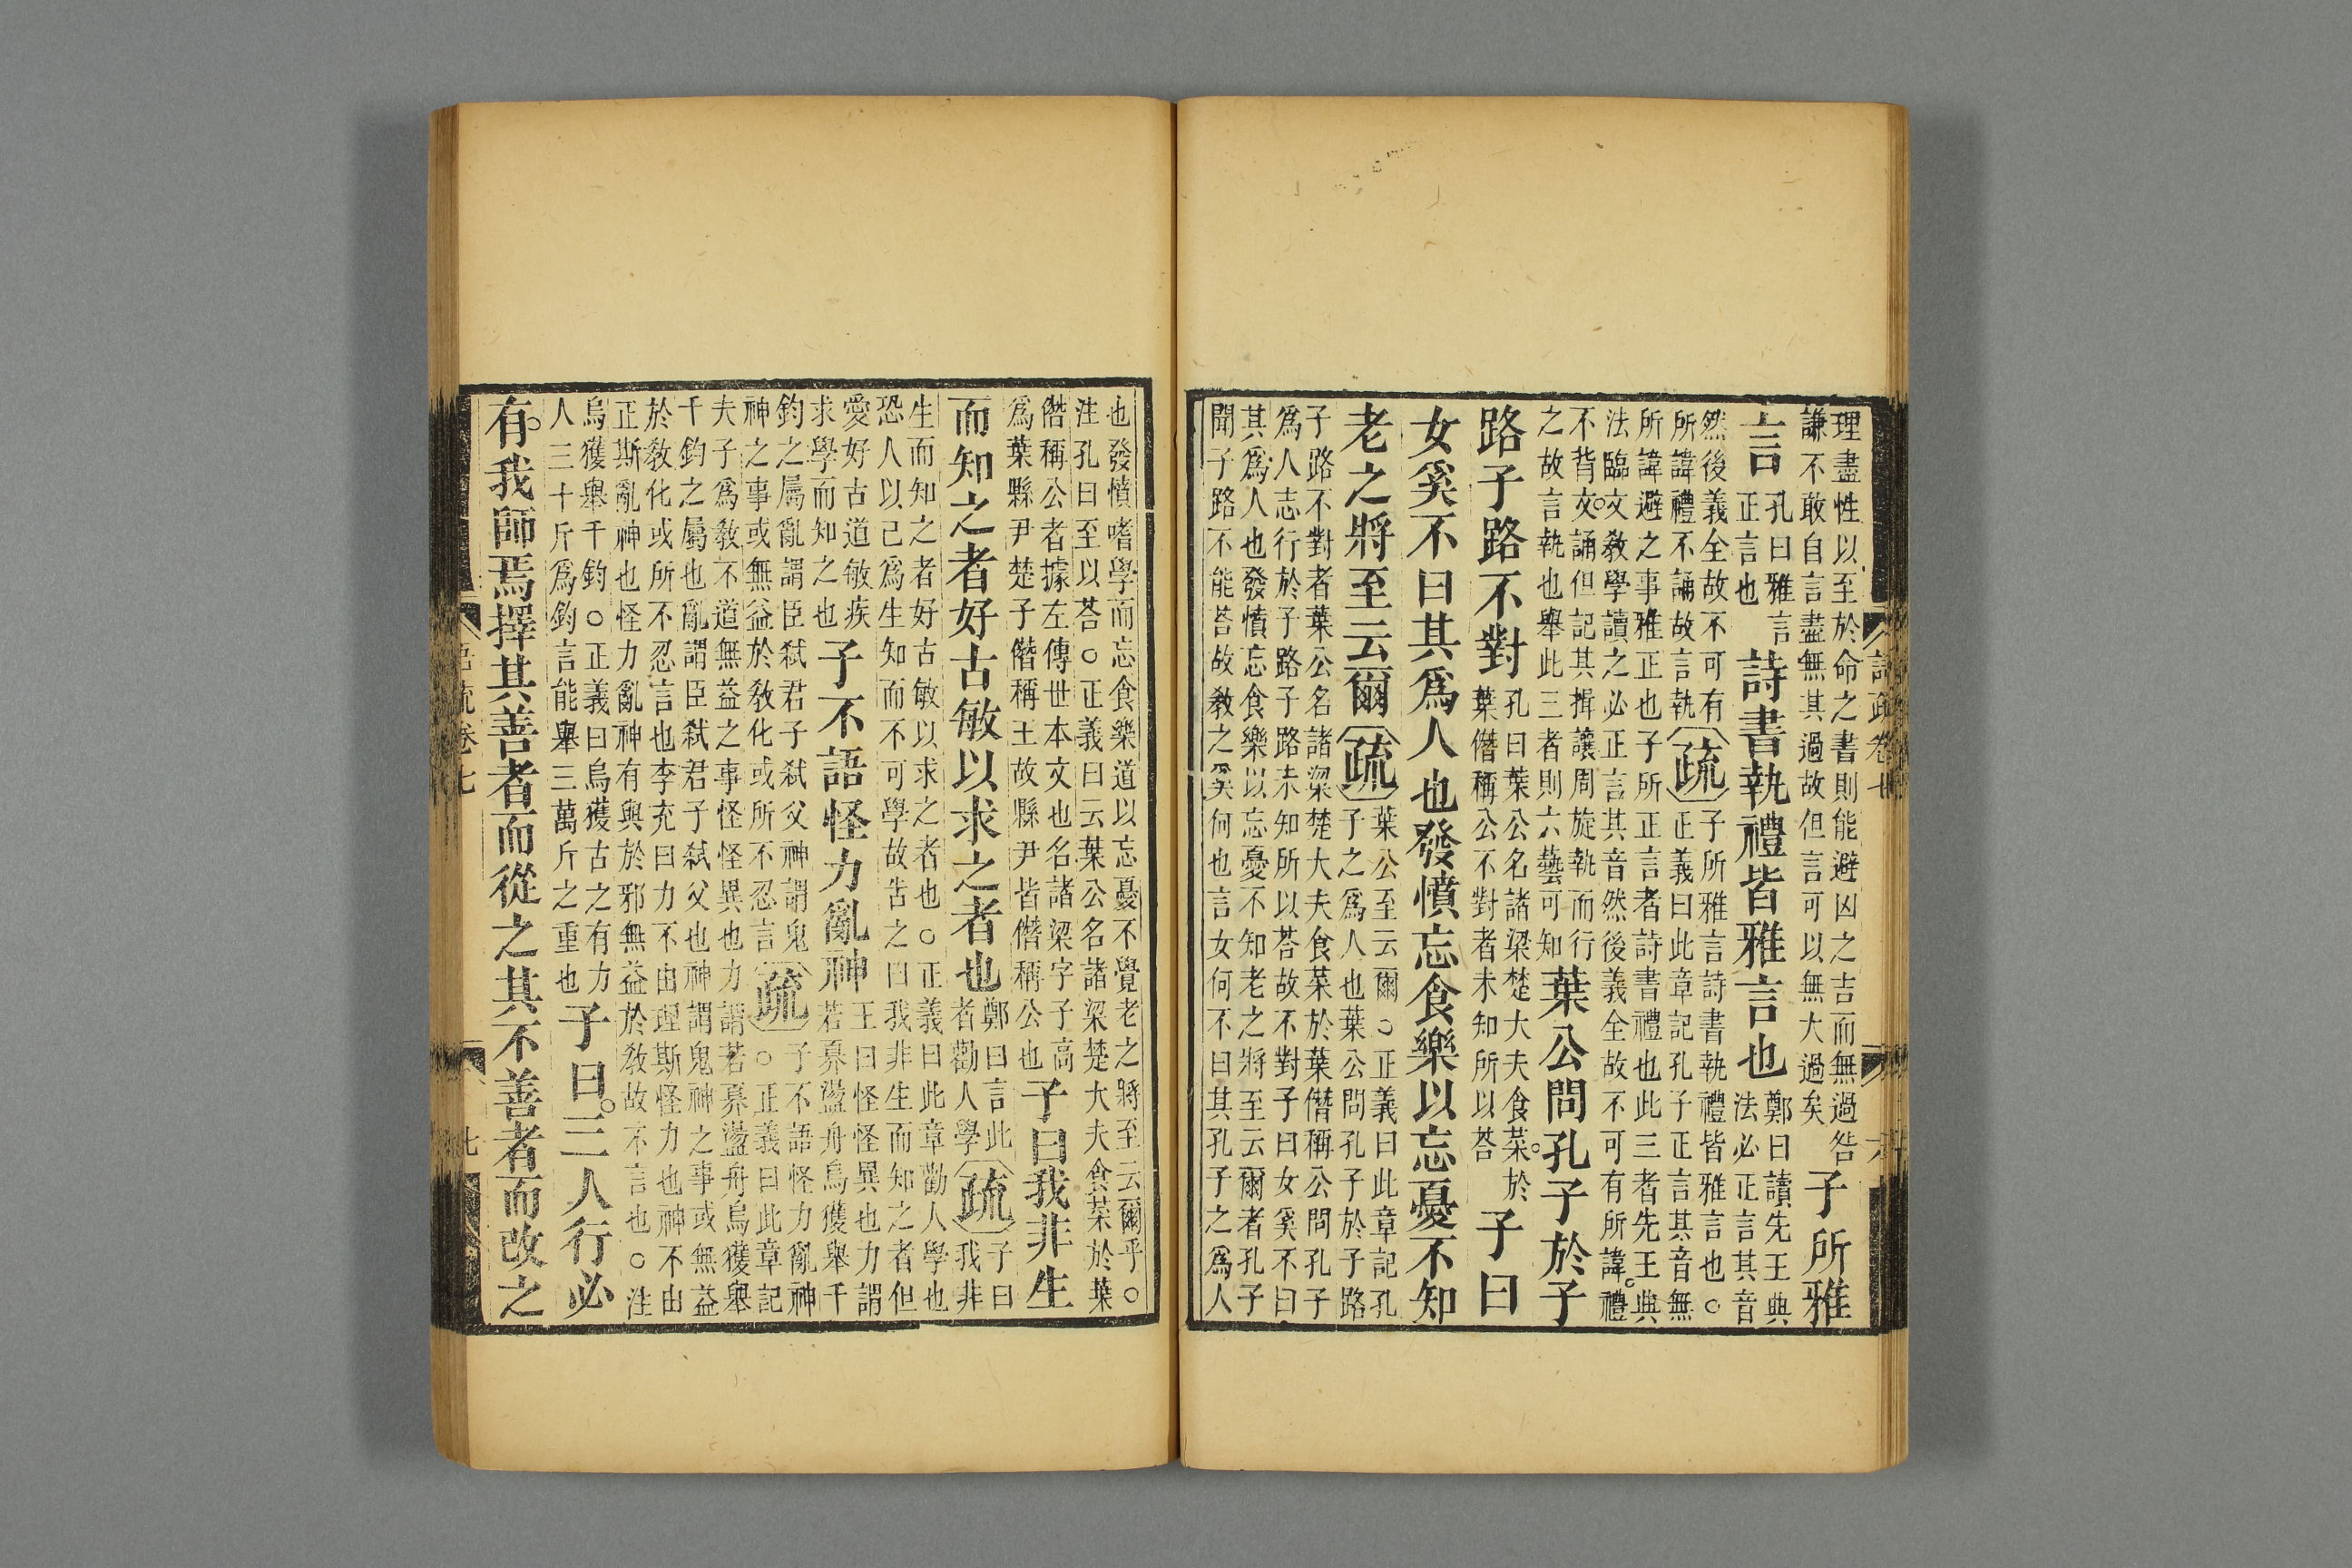 理盡性以至於命之書則能避凶之吉而無過咎
謙不敢自言盡無其過故但言可以無大過矣
子所雅
言
孔曰雅言
正言也
詩書執禮皆雅言也
鄭曰讀先王典
法必正言其音
然後義全故不可有
所諱禮不誦故言執
疏
子所雅言詩書執禮皆雅言也○
正義曰此章記孔子正言其音無
所諱避之事雅正也子所正言者詩書禮也此三者先王典
法臨文教學讀之必正言其音然後義全故不可有所諱禮
不背文誦但記其揖讓周旋執而行
之故言執也舉此三者則六藝可知
葉公問孔子於子
路子路不對
孔曰葉公名諸梁楚大夫食菜於
葉僭稱公不對者未知所以荅
子曰
女奚不曰其爲人也發憤忘食樂以忘憂不知
老之將至云爾
疏
葉公至云爾○正義曰此章記孔
子之爲人也葉公問孔子於子路
子路不對者葉公名諸梁楚大夫食菜於葉僭稱公問孔子
爲人志行於子路子路未知所以荅故不對子曰女奚不曰
其爲人也發憤忘食樂以忘憂不知老之將至云爾者孔子
聞子路不能荅故教之奚何也言女何不曰其孔子之爲人
也發憤嗜學而忘食樂道以忘憂不覺老之將至云爾乎○
注孔曰至以荅○正義曰云葉公名諸梁楚大夫食菜於葉
僭稱公者據左傳世本文也名諸梁字子高
爲葉縣尹楚子僭稱王故縣尹皆僭稱公也
子曰我非生
而知之者好古敏以求之者也
鄭曰言此
者勸人學
疏
子曰
我非
生而知之者好古敏以求之者也○正義曰此章勸人學也
恐人以己爲生知而不可學故告之曰我非生而知之者但
愛好古道敏疾
求學而知之也
子不語怪力亂神
王曰怪怪異也力謂
若奡盪舟烏獲舉千
鈞之屬亂謂臣弒君子弒父神謂鬼
神之事或無益於教化或所不忍言
疏
子不語怪力亂神
○正義曰此章記
夫子爲教不道無益之事怪怪異也力謂若奡盪舟烏獲舉
千鈞之屬也亂謂臣弒君子弒父也神謂鬼神之事或無益
於教化或所不忍言也李充曰力不由理斯怪力也神不由
正斯亂神也怪力亂神有與於邪無益於教故不言也○注
烏獲舉千鈞○正義曰烏獲古之有力
人三十斤爲鈞言能舉三萬斤之重也
子曰三人行必
有我師焉擇其善者而從之其不善者而改之